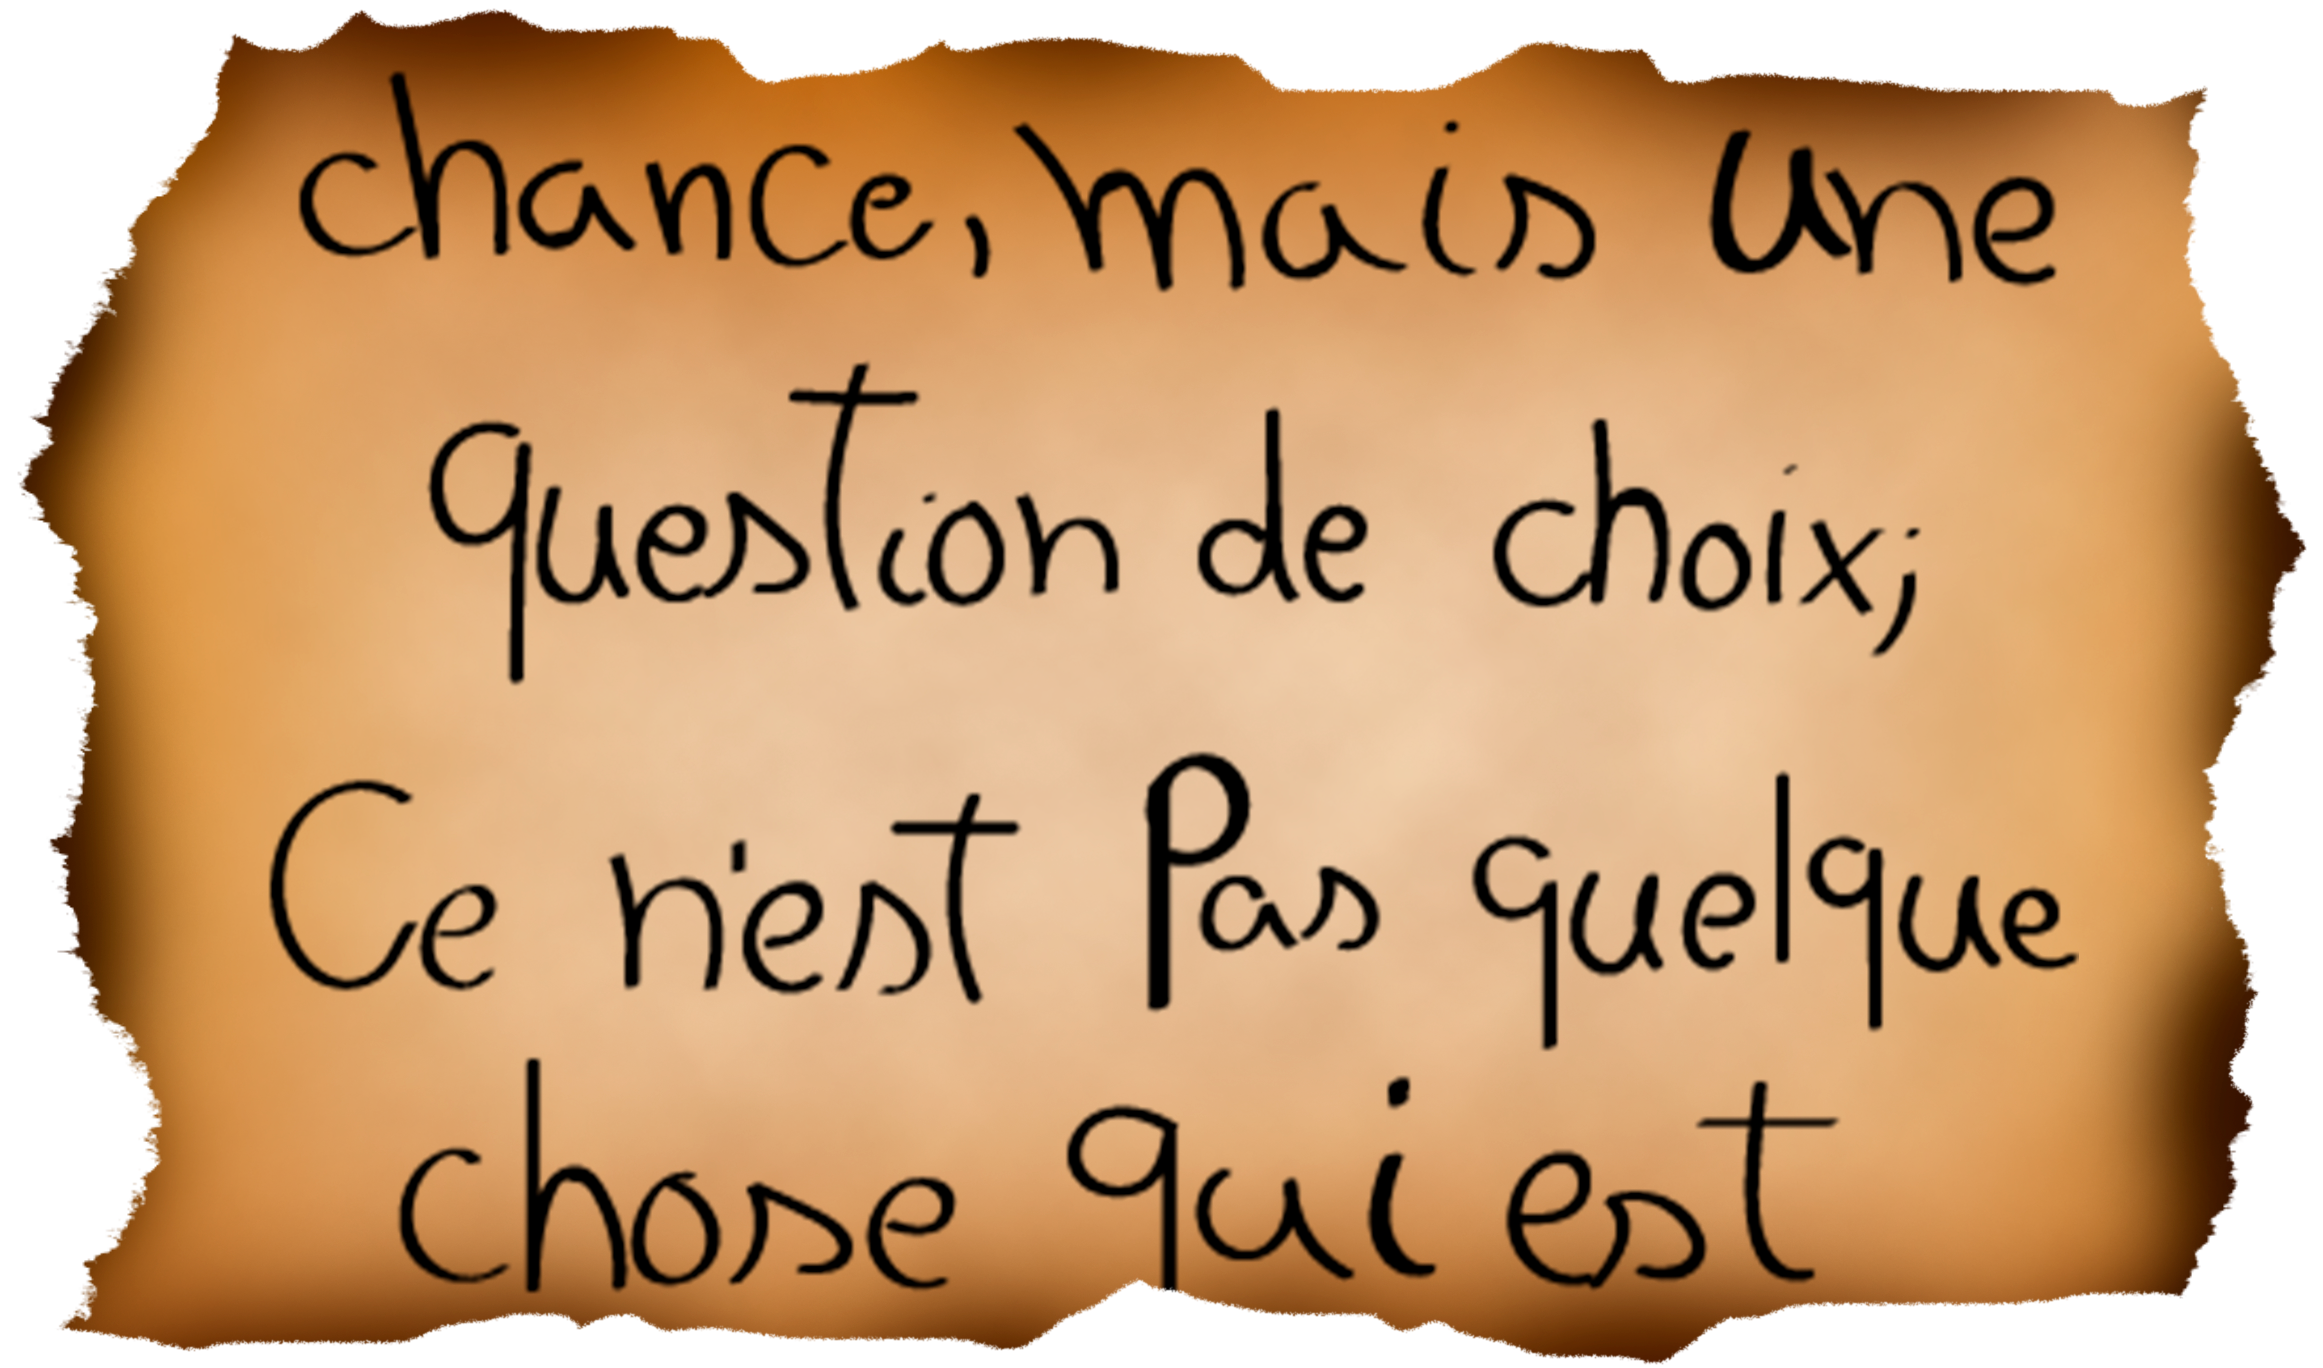 chance, mais une
question de choix;
Ce n'est Pas quelque
chose qui est